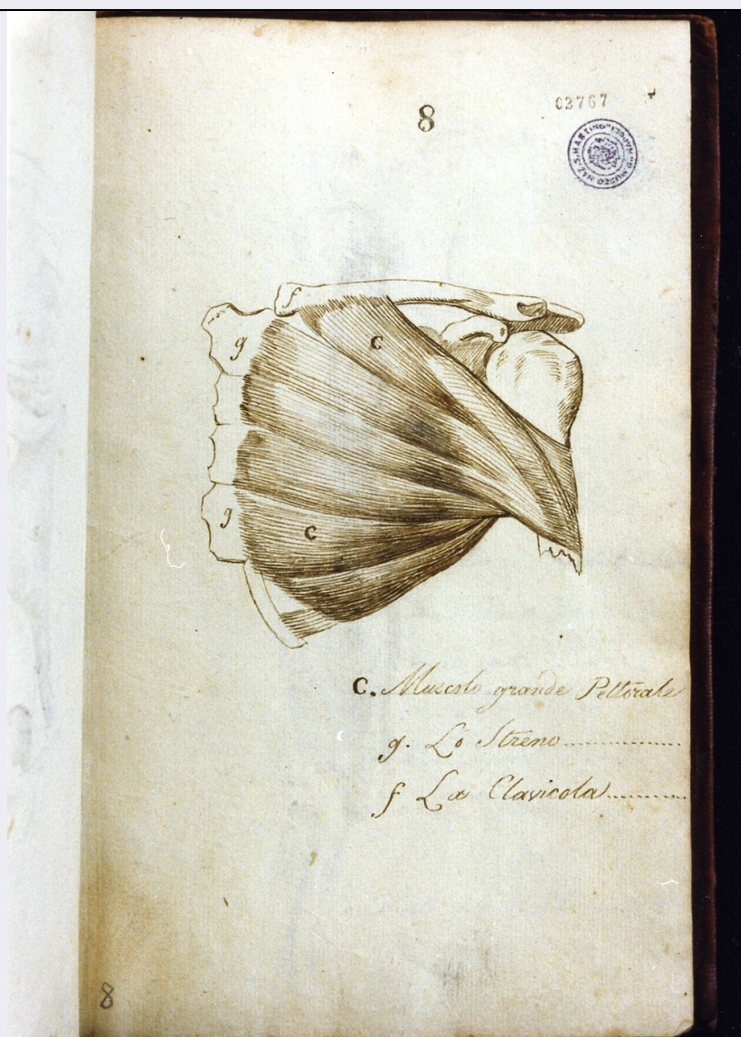 8
03767
f
g
C
g
C
C. Muscolo grande Pettorale
g. Lo Streno
f La Clavicola
8